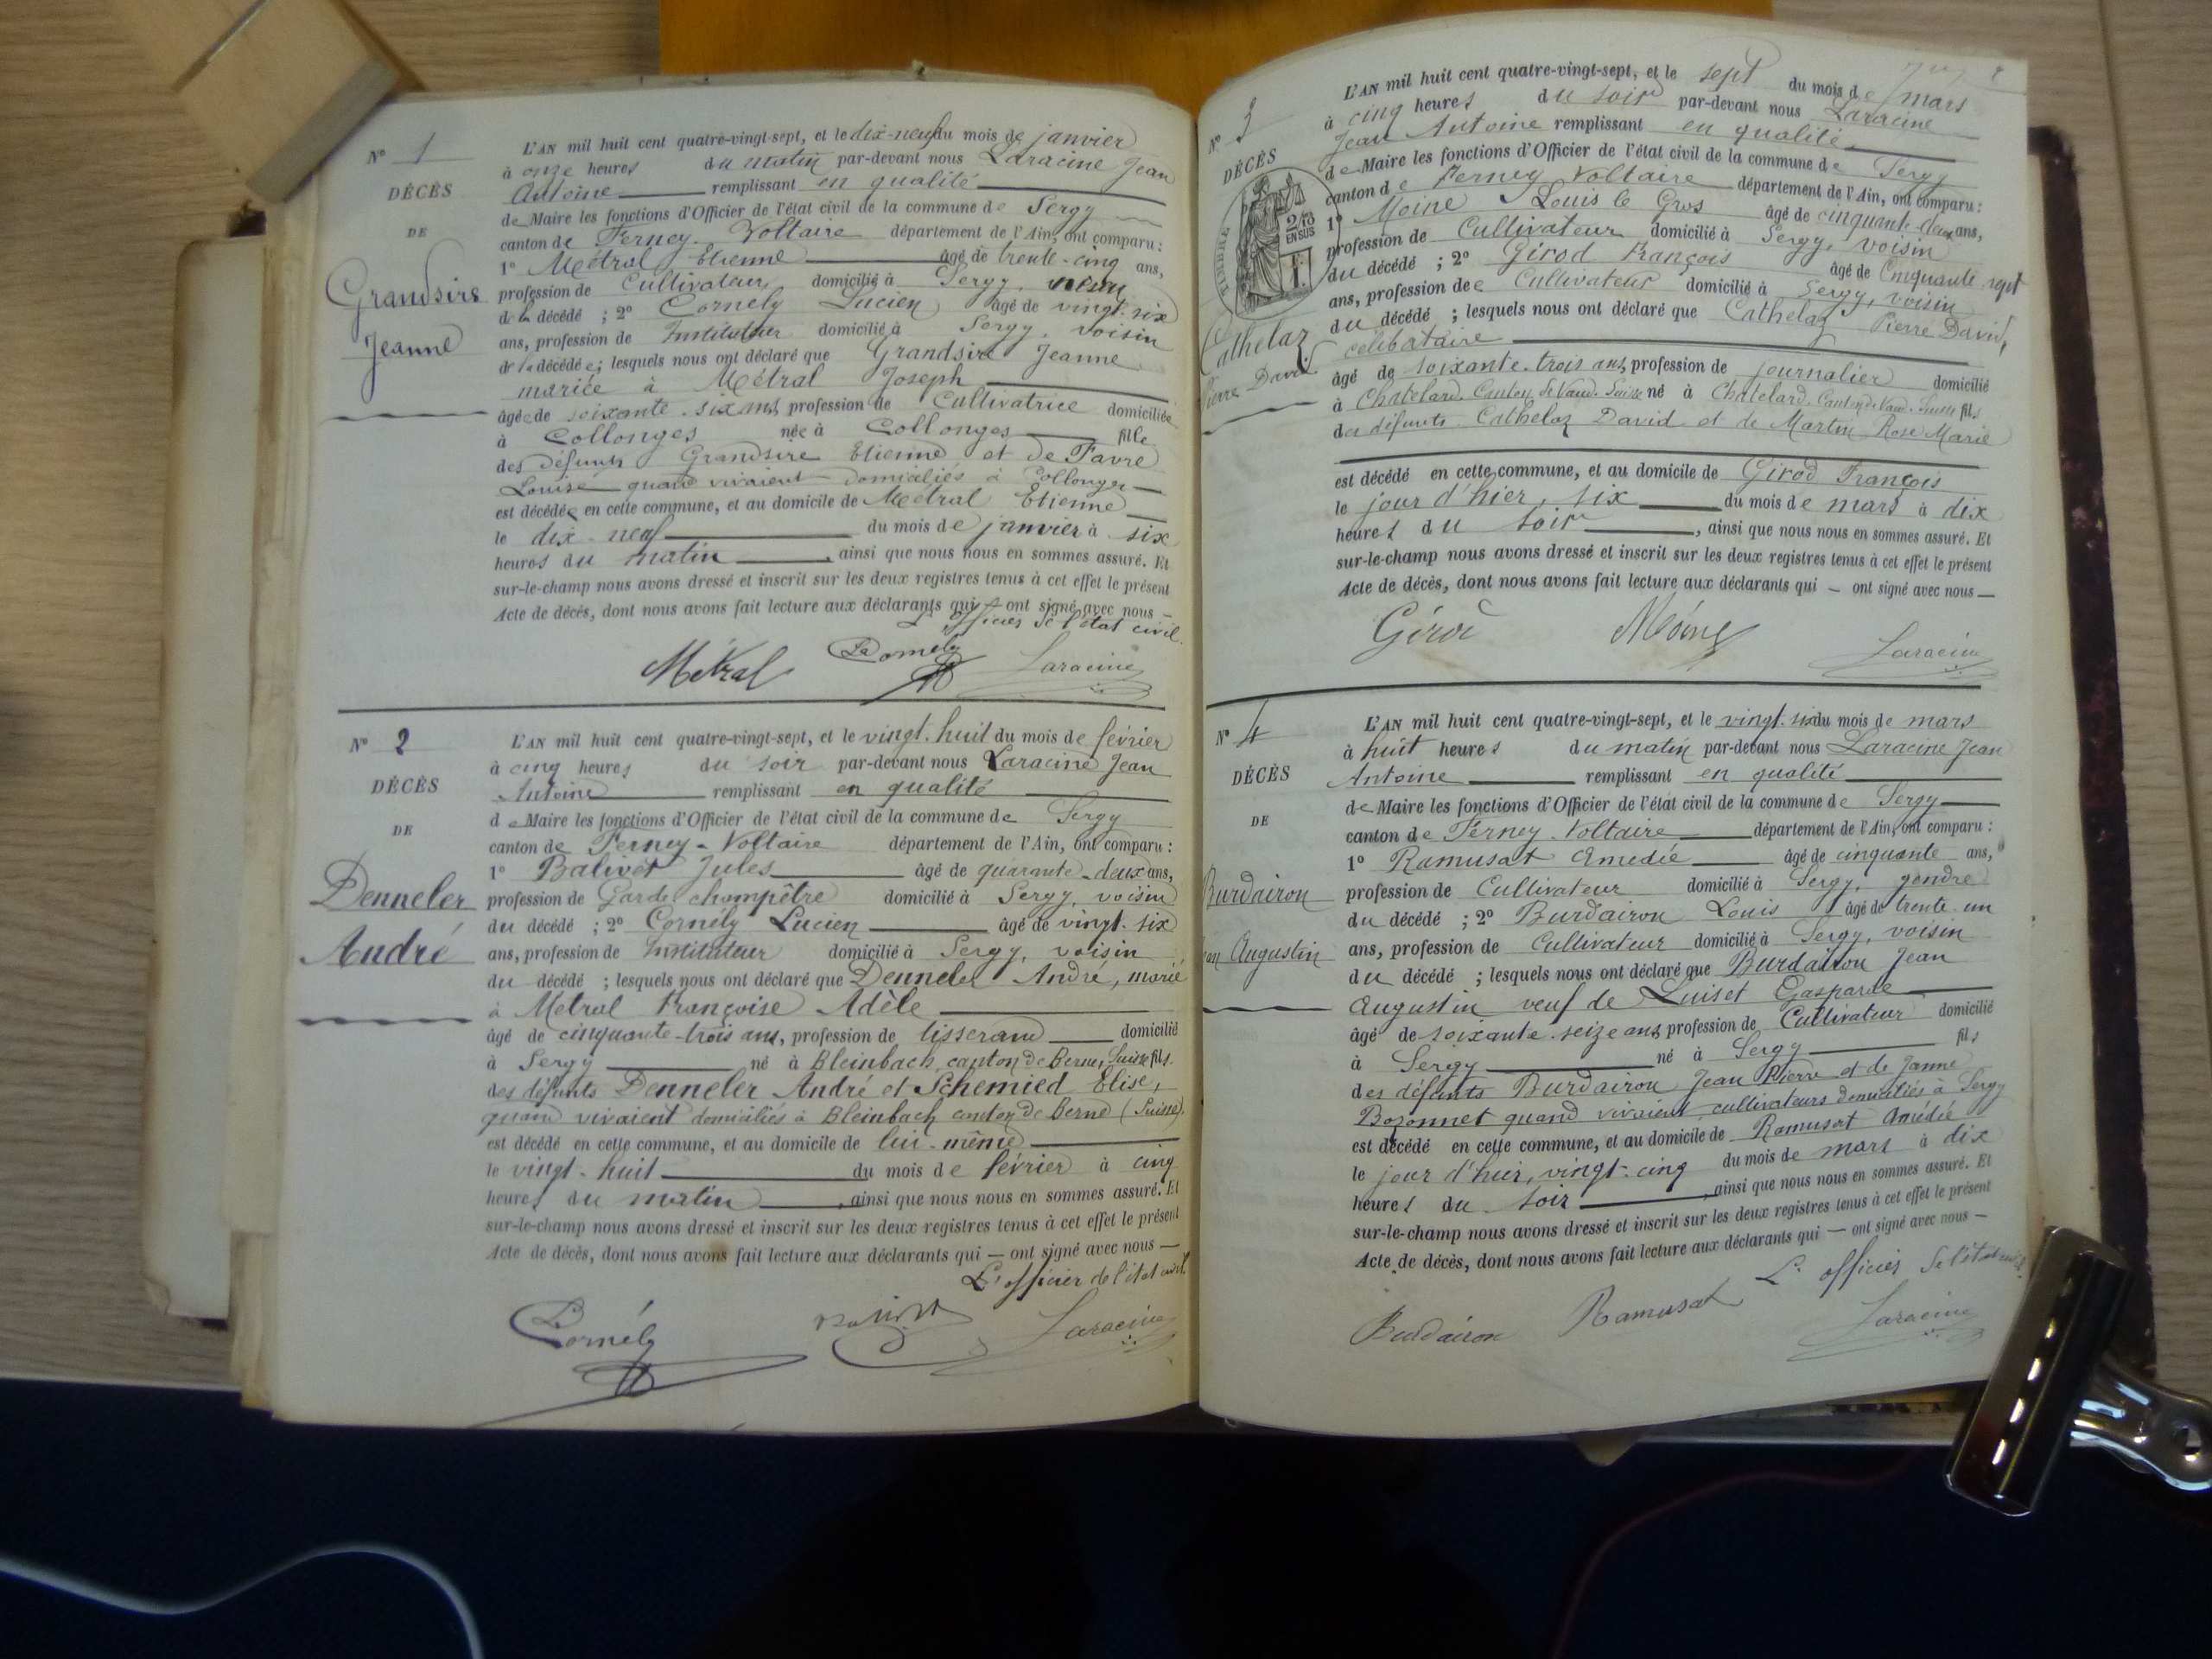 N° 1
DÉCÈS
DE
Grandsire
Jeanne
L'AN mil huit cent quatre-vingt-sept, et le dix-neuf du mois de janvier
à onze heures du matin par-devant nous Laracine Jean
Antoine remplissant en qualité
de Maire les fonctions d'Officier de l'état civil de la commune de Sergy
canton de Ferney-Voltaire département de l'Ain, ont comparu :
1° Métral Etienne âgé de trente-cinq ans,
profession de Cultivateur domicilié à Sergy, neveu
de la décédé ; 2° Cornély Lucien âgé de vingt-six
ans, profession de Instituteur domicilié à Sergy, voisin
de la décédée ; lesquels nous ont déclaré que Grandsire Jeanne
mariée à Métral Joseph
âgée de soixante-six ans, profession de Cultivatrice domiciliée
à Collonges née à Collonges fille
des défunts Grandsire Etienne et de Favre
Louise quand vivaient domiciliés à Collonges
est décédée en cette commune, et au domicile de Métral Etienne
le dix-neuf du mois de janvier à six
heures du matin, ainsi que nous nous en sommes assuré. Et
sur-le-champ nous avons dressé et inscrit sur les deux registres tenus à cet effet le présent
Acte de décès, dont nous avons fait lecture aux déclarants qui ont signé avec nous
L'officier de l'état civil.
Métral Cornély Laracine
N° 2
DÉCÈS
DE
Denneler
André
L'AN mil huit cent quatre-vingt-sept, et le vingt-huit du mois de février
à cinq heures du soir par-devant nous Laracine Jean
Antoine remplissant en qualité
de Maire les fonctions d'Officier de l'état civil de la commune de Sergy
canton de Ferney-Voltaire département de l'Ain, ont comparu :
1° Balivet Jules âgé de quarante-deux ans,
profession de Garde champêtre domicilié à Sergy, voisin
du décédé ; 2° Cornély Lucien âgé de vingt-six
ans, profession de Instituteur domicilié à Sergy, voisin
du décédé ; lesquels nous ont déclaré que Denneler André, marié
à Métral Françoise Adèle
âgé de cinquante-trois ans, profession de tisserand domicilié
à Sergy né à Bleinbach, canton de Berne, Suisse fils
des défunts Denneler André et Schemied Elise,
quand vivaient domiciliés à Bleinbach canton de Berne (Suisse).
est décédé en cette commune, et au domicile de lui-même
le vingt-huit du mois de février à cinq
heures du matin, ainsi que nous nous en sommes assuré. Et
sur-le-champ nous avons dressé et inscrit sur les deux registres tenus à cet effet le présent
Acte de décès, dont nous avons fait lecture aux déclarants qui — ont signé avec nous —
L'officier de l'état civil.
Cornély Balivet Laracine
N° 3
DÉCÈS
TIMBRE
2/10
EN SUS
Cathelaz
Pierre David
L'AN mil huit cent quatre-vingt-sept, et le sept du mois de mars
à cinq heures du soir par-devant nous Laracine
Jean Antoine remplissant en qualité
de Maire les fonctions d'Officier de l'état civil de la commune de Sergy
canton de Ferney Voltaire département de l'Ain, ont comparu :
1° Moine Louis le Gros âgé de cinquante-deux ans,
profession de Cultivateur domicilié à Sergy, voisin
du décédé ; 2° Girod François âgé de Cinquante-sept
ans, profession de Cultivateur domicilié à Sergy, voisin
du décédé ; lesquels nous ont déclaré que Cathelaz Pierre David,
célibataire
âgé de soixante-trois ans, profession de journalier domicilié
à Chatelard, Canton de Vaud, Suisse né à Chatelard, Canton de Vaud, Suisse fils
des défunts Cathelaz David et de Martin Rose Marie
est décédé en cette commune, et au domicile de Girod François
le jour d'hier, six du mois de mars à dix
heures du soir, ainsi que nous nous en sommes assuré. Et
sur-le-champ nous avons dressé et inscrit sur les deux registres tenus à cet effet le présent
Acte de décès, dont nous avons fait lecture aux déclarants qui — ont signé avec nous —
Girod Moine Laracine
N° 4
DÉCÈS
DE
Burdairon
Augustin
L'AN mil huit cent quatre-vingt-sept, et le vingt-six du mois de mars
à huit heures du matin par-devant nous Laracine Jean
Antoine remplissant en qualité
de Maire les fonctions d'Officier de l'état civil de la commune de Sergy
canton de Ferney-Voltaire département de l'Ain, ont comparu :
1° Ramusat Amédée âgé de cinquante ans,
profession de Cultivateur domicilié à Sergy, gendre
du décédé ; 2° Burdairon Louis âgé de trente-un
ans, profession de Cultivateur domicilié à Sergy, voisin
du décédé ; lesquels nous ont déclaré que Burdairon Jean
Augustin veuf de Luiset Gasparde
âgé de soixante-seize ans, profession de Cultivateur domicilié
à Sergy né à Sergy fils
des défunts Burdairon Jean Pierre et de Janne
Bozonnet quand vivaient cultivateurs domiciliés à Sergy
est décédé en cette commune, et au domicile de Ramusat Amédée
le jour d'hier, vingt-cinq du mois de mars à dix
heures du soir, ainsi que nous nous en sommes assuré. Et
sur-le-champ nous avons dressé et inscrit sur les deux registres tenus à cet effet le présent
Acte de décès, dont nous avons fait lecture aux déclarants qui — ont signé avec nous —
L'officier de l'état civil.
Burdairon Ramusat Laracine